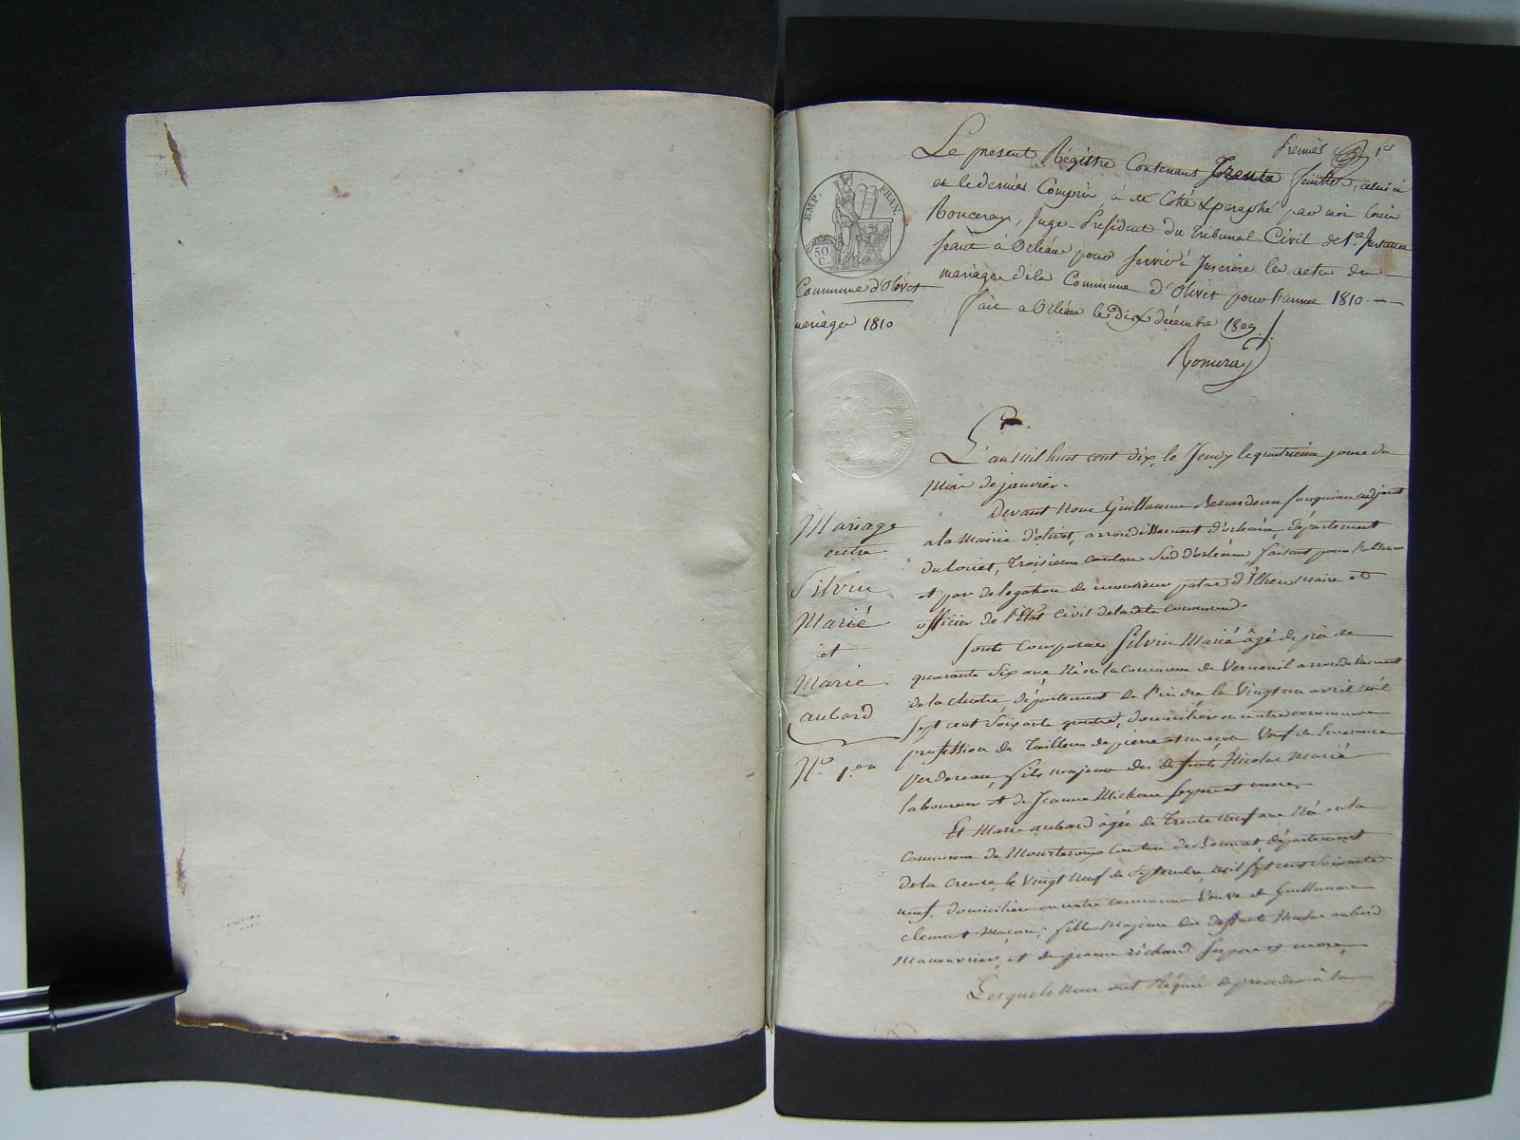 premier 1er
Le present Registre Contenant Trente feuillets, celui ci
et le dernier Compris, a été Coté & paraphé par moi Louis
Ronceray, Juge-Président du Tribunal Civil de 1.re Instance
séant à Orléans pour servir à Inscrire les actes de
mariages de la Commune d'Olivet pour l'année 1810
fait a Orléans le dix décembre 1809
Ronceray
EMP. FRAN.
50 C.
Commune d'Olivet
mariages 1810
L'an mil huit cent dix, le Jeudy le quatrieme jour du
Mois de janvier.
Mariage
entre
Silvin
Marié
et
Marie
aubard
N.o 1.er
Devant Nous Guillaume adjoint
a la Mairie d'olivet, arrondissement d'orleans, département
du Loiret, Troisieme canton Sud d'orléans, faisant pour
et par delegation de monsieur maire et
officier de l'Etat Civil de la dite commune.
Sont Comparus Silvin Marié âgé de près de
quarante Six ans Né en la commune de Verneuil arrondissement
de la chatre, département de l'indre le Vingt un avril mil
Sept cent Soixante quatre, domicilié en notre commune
profession de Tailleur de pierre et maçon Veuf de
fils majeur des Nicolas Marié
laboureur et de Jeanne ses pere et mere,
Et Marie aubard âgée de Trente Neuf ans Née en la
commune de Mourtroux Canton de Bonnat, département
de la Creuse, le Vingt Neuf de Septembre mil Sept cent Soixante
neuf, domiciliée en notre commune Veuve de Guillaume
clement Maçon, fille Majeure des deffunts aubard
Manœuvrier, et de jeanne Richard Ses pere et mere,
Lesquels Nous ont Requis de proceder à la